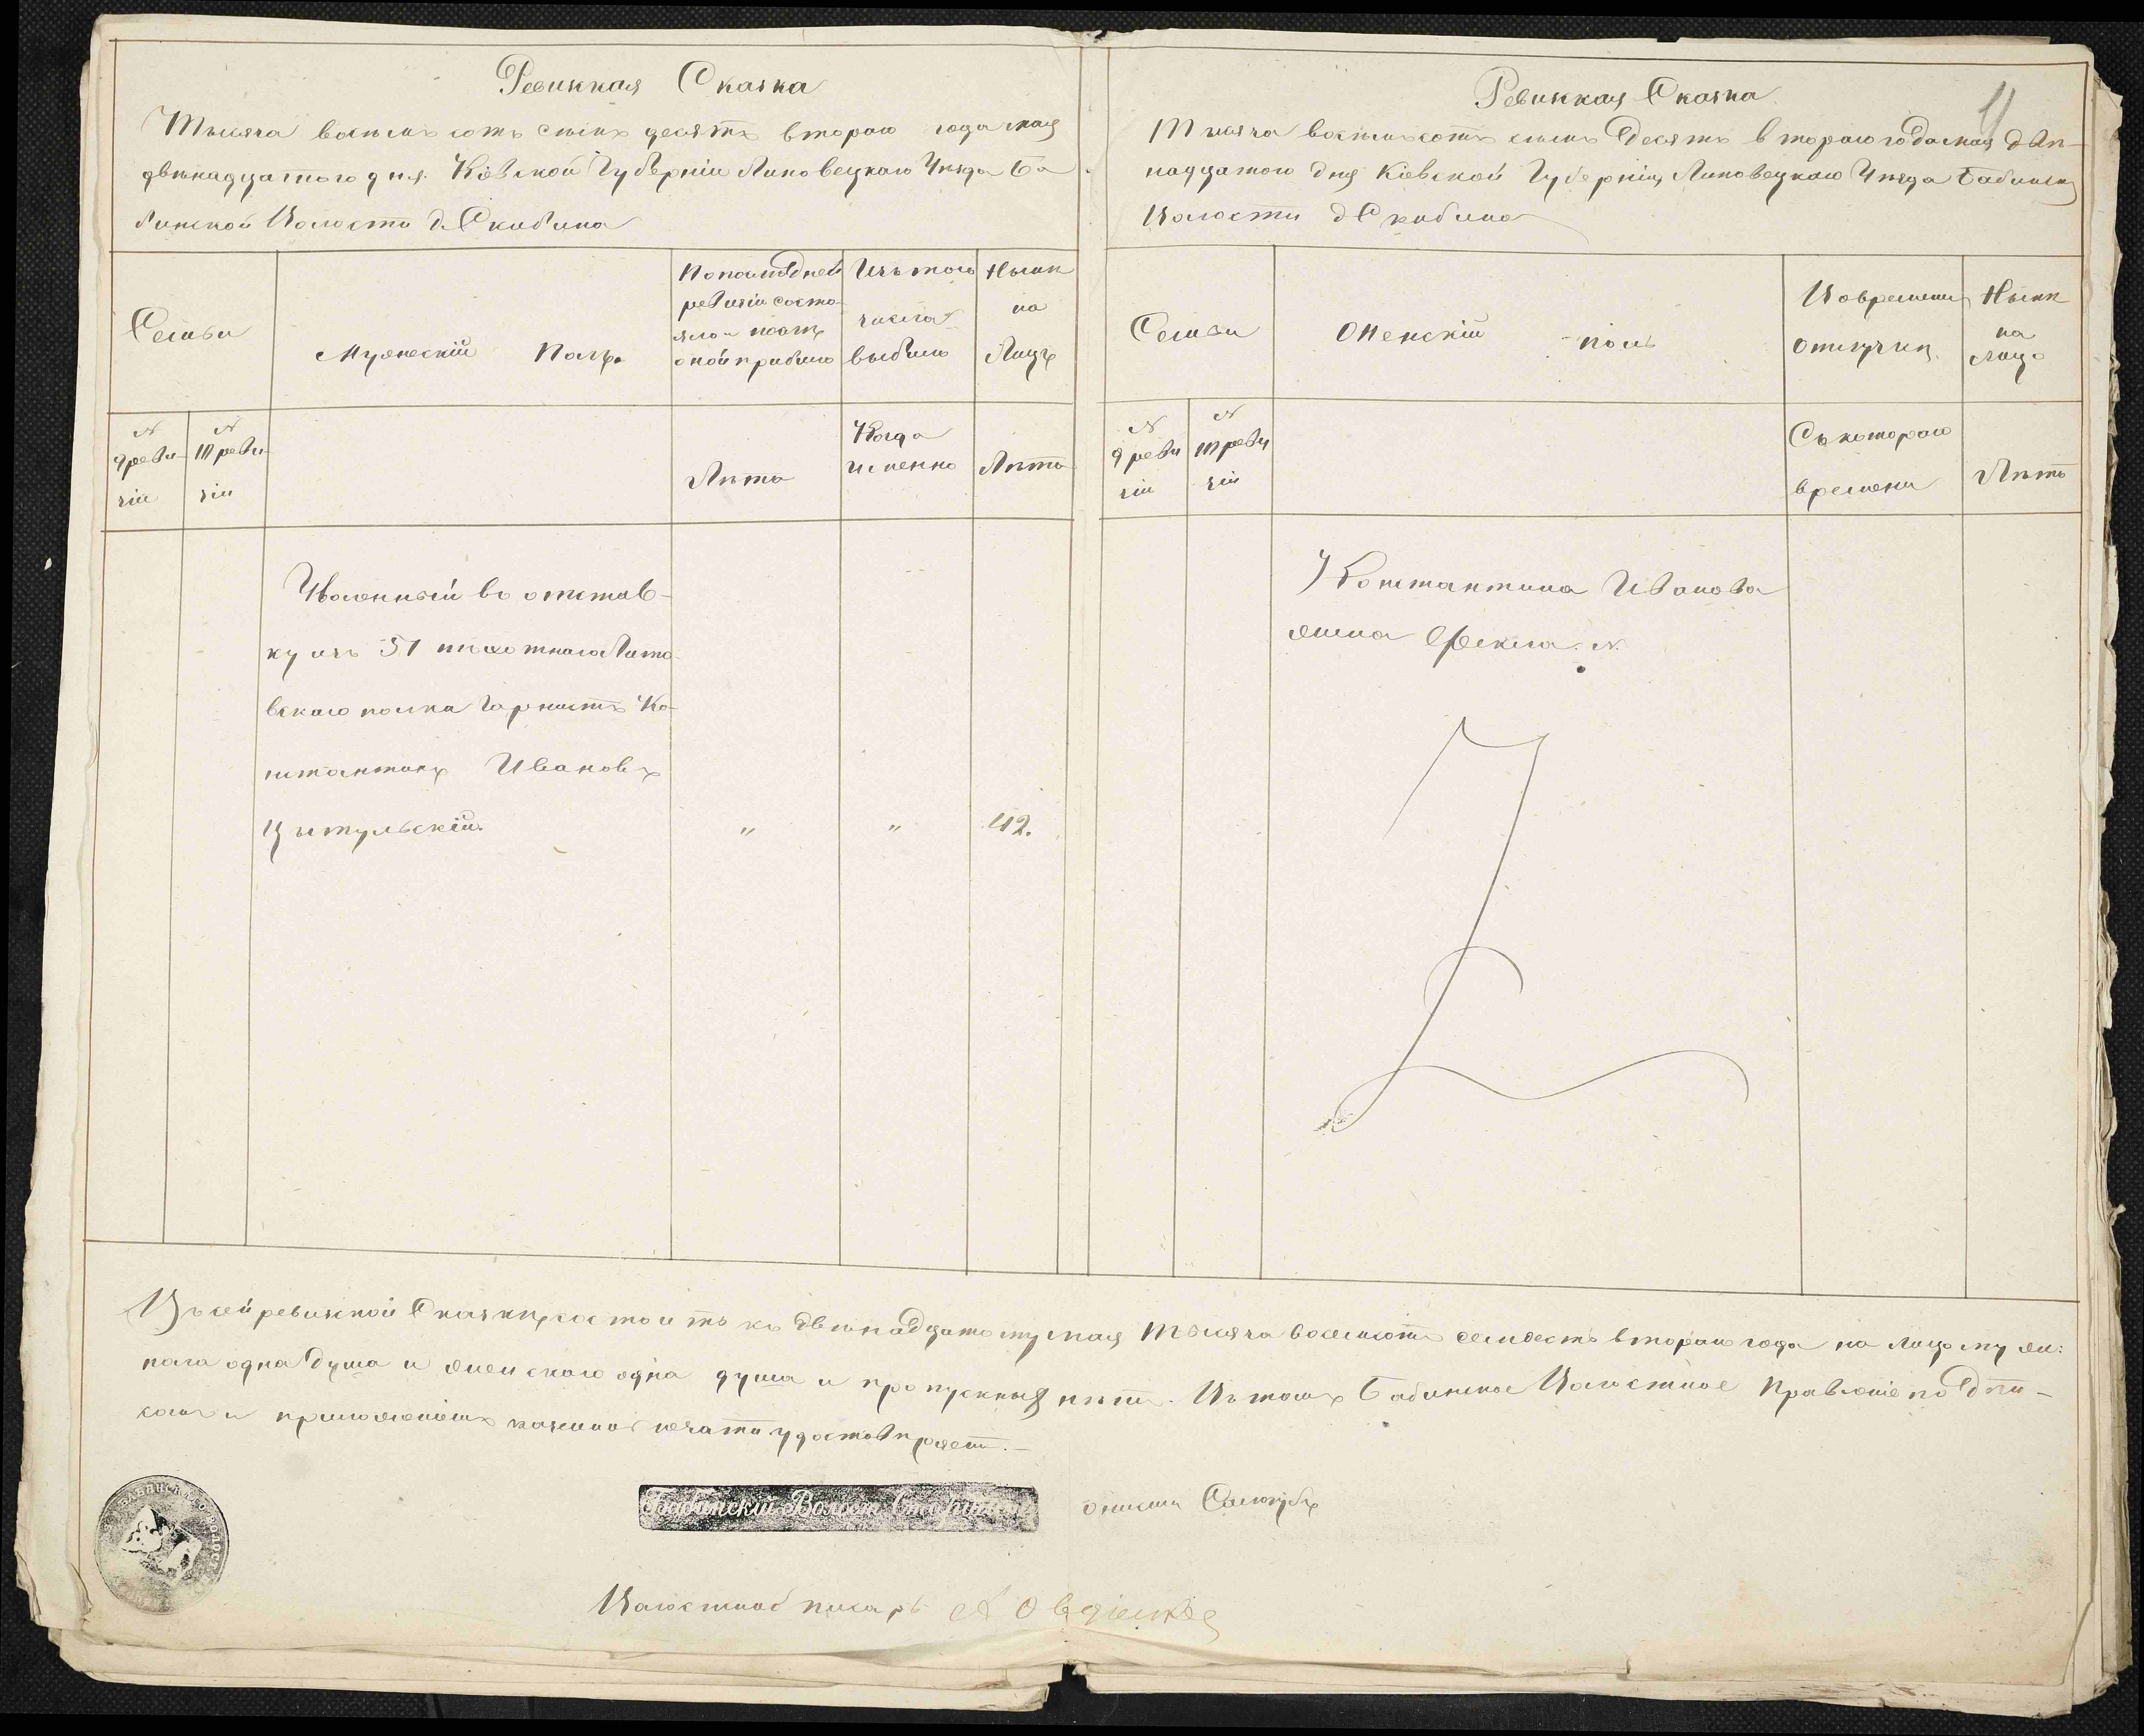 Ревизкая Сказка
Тысяча восемь сотъ семь десятъ втораго года мая
двѣнадцатого дня Кіевской Губерніи Липовецкаго Уѣзда Ба
бинской Волости д. Скибина
Семьи
Мужескій Полъ
По последней
ревизіи состо-
яло и послѣ
оной прибыло
Изъ того
числа
выбыло
Нынѣ
на
Лицѣ
№
9 реви-
зіи
№
10 реви-
зіи
Лѣта
Когда
именно
Лѣта
Уволенный во отстав-
ку изъ 51 пѣхотнаго Лито
вскаго полка Горнистъ Ко-
нстантинъ Ивановъ
Цитульскій. " " 42.
Ревизкая Сказка
11
Тысяча восемьсотъ семь десятъ втораго года мая двѣ-
надцатого дня Кіевской Губерніи Липовецкаго Уѣзда Бабинской
Волости д Скибина
Семьи
Женскій полъ
Во временной
отлучкѣ.
Нынѣ
на
лицо
№
9 реви
зіи
№
10 реви
зіи
Съ котораго
времени
Лѣта
Константина Иванова
жена Фекла.
Въ сей ревизкой Сказкѣ состоитъ къ двѣнадцатому мая тысяча восемсотъ семдесятъ втораго года на лицо муже:
пола одна душа и женскаго одна душа и пропускныхъ нѣтъ. Въ томъ Бабинское Волостное Правленіе подпи-
сомъ и приложеніемъ казенной печати удостовѣряетъ.
Бабинскій Волост. Старшина
Волостной писарь